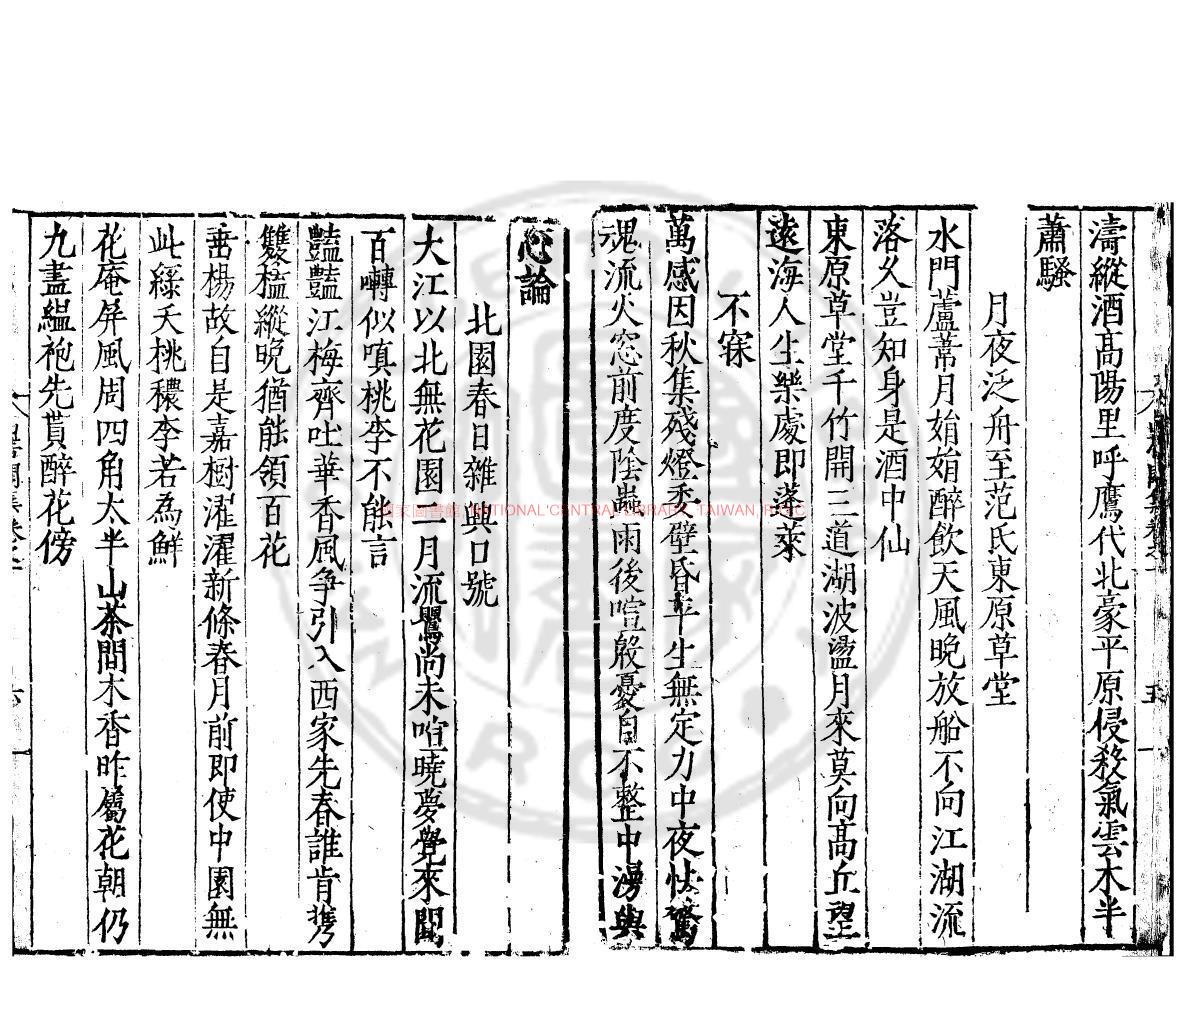 濤縱酒高陽里呼鷹代北豪平原侵殺氣雲木半
蕭騷
月夜泛舟至范氏東原草堂
水門蘆葦月娟娟醉飲天風晚放船不向江湖流
落久豈知身是酒中仙
東原草堂千竹開三道湖波盪月來莫向高丘望
遠海人生樂處即蓬萊
不寐
萬感因秋集殘燈委壁昏平生無定力中夜怯驚
魂流火窓前度陰蟲雨後喧殷憂自不整中湯與
心論
北園春日雜興口號
大江以北無花園二月流鸎尚未喧曉夢覺來聞
百囀似嗔桃李不能言
豔豔江梅齊吐華香風争引入西家先春誰肯携
雙榼縱晚猶能領百花
垂楊故自是嘉樹濯濯新條春月前即使中園無
此綠夭桃穠李若為鮮
花庵屏風周四角大半山茶間木香昨屬花朝仍
九盡緼袍先貰醉花傍
五
六
國家圖書館 NATIONAL CENTRAL LIBRARY, TAIWAN, R.O.C.